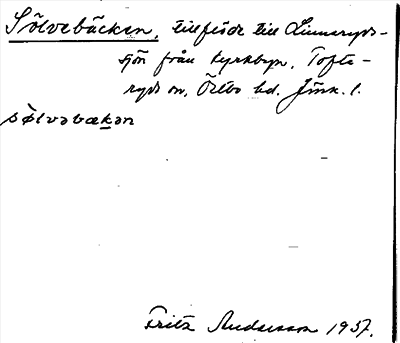 Sölvebäcken, tillflöde till Linneryds-
sjön från kyrkbyn, Tofte-
ryds sn, Östbo hd. Jönk. l.
sölvəbækən
Fritz Andersson 1937.